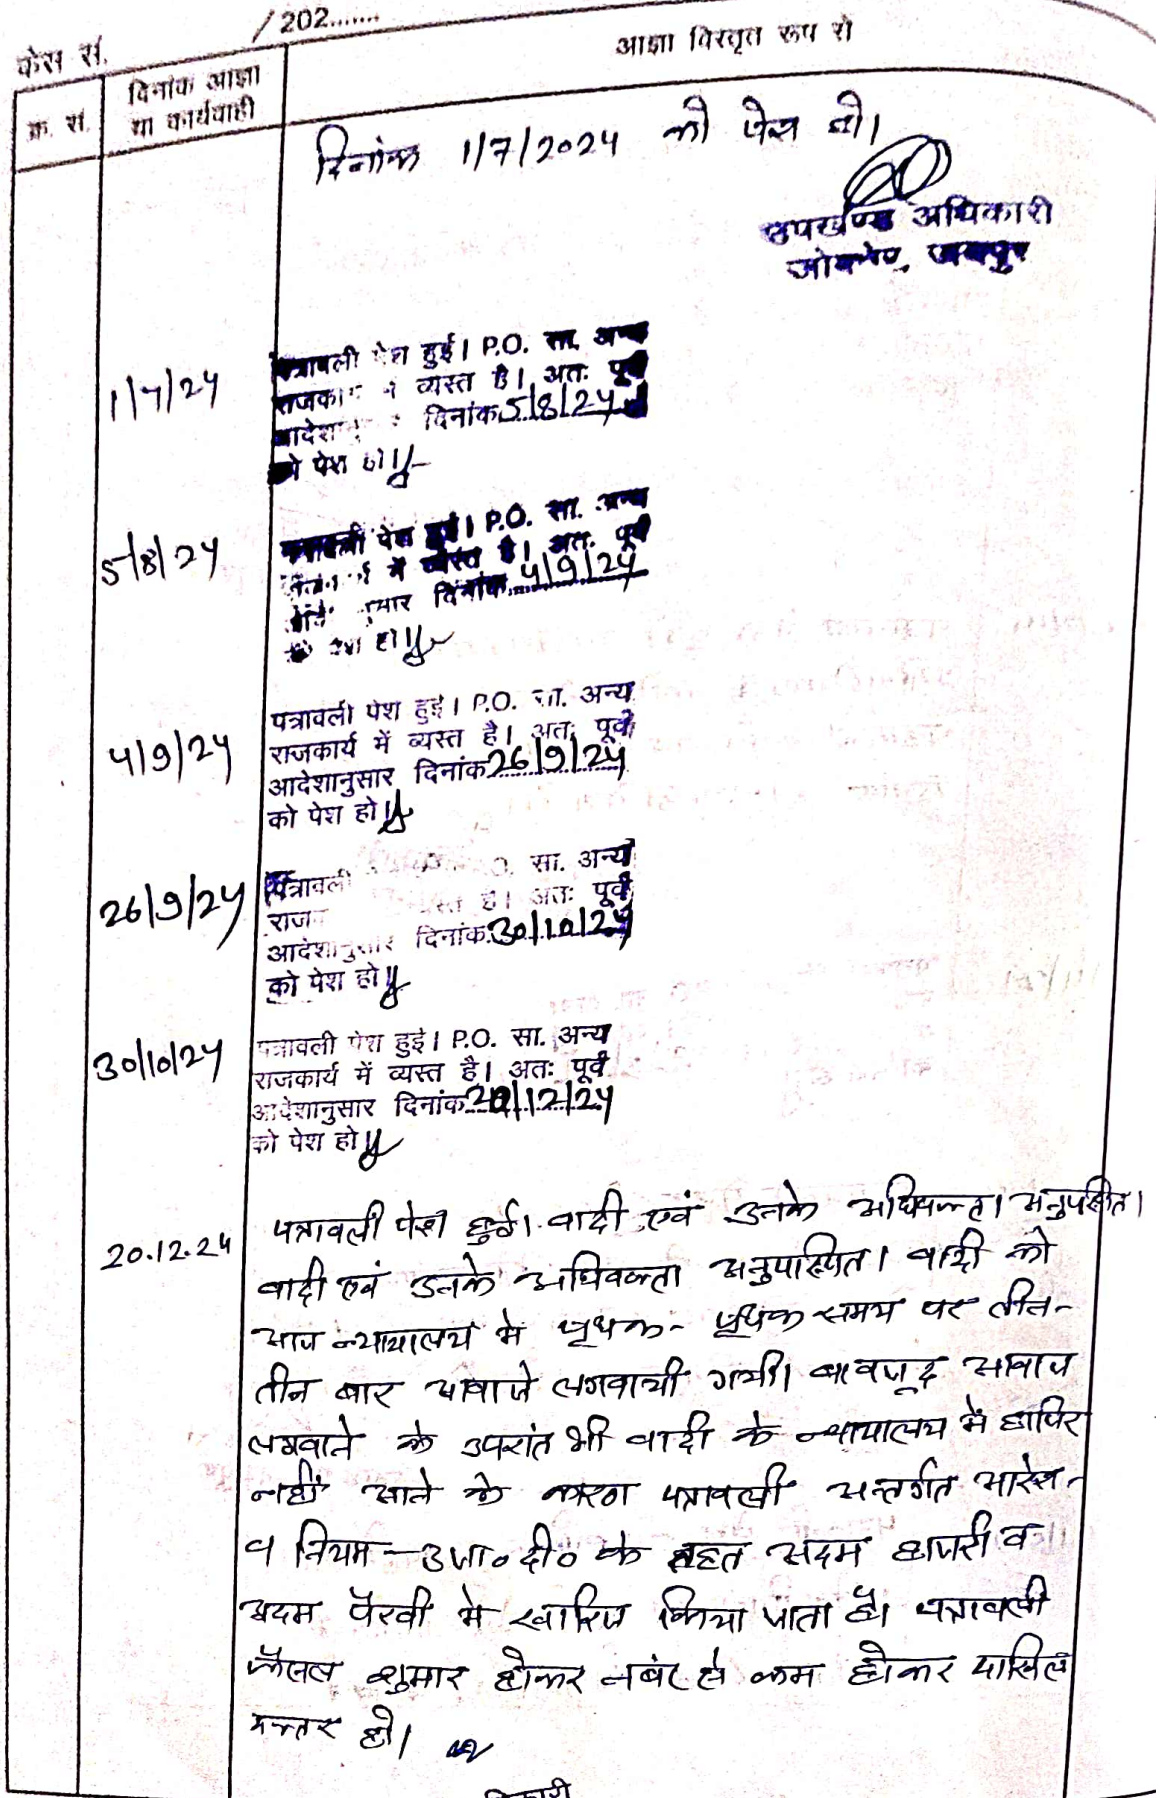 /202.......
केस सं.
क्र. सं.
दिनांक आज्ञा
या कार्यवाही
आज्ञा विस्तृत रूप से
दिनांक 1/7/2024 को पेश हो।
उपखण्ड अधिकारी
जोबनेर, जयपुर
1/7/24
पत्रावली पेश हुई। P.O. सा. अन्य
राजकार्य में व्यस्त है। अतः पूर्व
आदेशानुसार दिनांक 5/8/24
को पेश हो।
5/8/24
पत्रावली पेश हुई। P.O. सा. अन्य
में व्यस्त है। अतः पूर्व
दिनांक 4/9/24
पेश हो।
4/9/24
पत्रावली पेश हुई। P.O. सा. अन्य
राजकार्य में व्यस्त है। अतः पूर्व
आदेशानुसार दिनांक 26/9/24
को पेश हो।
26/9/24
पत्रावली सा. अन्य
व्यस्त है। अतः पूर्व
आदेशानुसार दिनांक 30/10/24
को पेश हो।
30/10/24
पत्रावली पेश हुई। P.O. सा. अन्य
राजकार्य में व्यस्त है। अतः पूर्व
आदेशानुसार दिनांक 20/12/24
को पेश हो।
20.12.24
पत्रावली पेश हुई। वादी एवं उनके अधिवक्ता अनुपस्थित।
वादी एवं उनके अधिवक्ता अनुपस्थित। वादी को
आज न्यायालय मे पृथक- पृथक समय पर तीन-
तीन बार आवाजे लगवायी गयी। बावजूद आवाज
लगवाने के उपरांत भी वादी के न्यायालय में हाजिर
नहीं आने के कारण पत्रावली अन्तर्गत आदेश-
9 नियम-3 जा० दी० के तहत अदम हाजरी व
अदम पैरवी मे खारिज किया जाता है। पत्रावली
फैसल शुमार होकर नबंर से कम होकर दाखिल
दफ्तर हो।